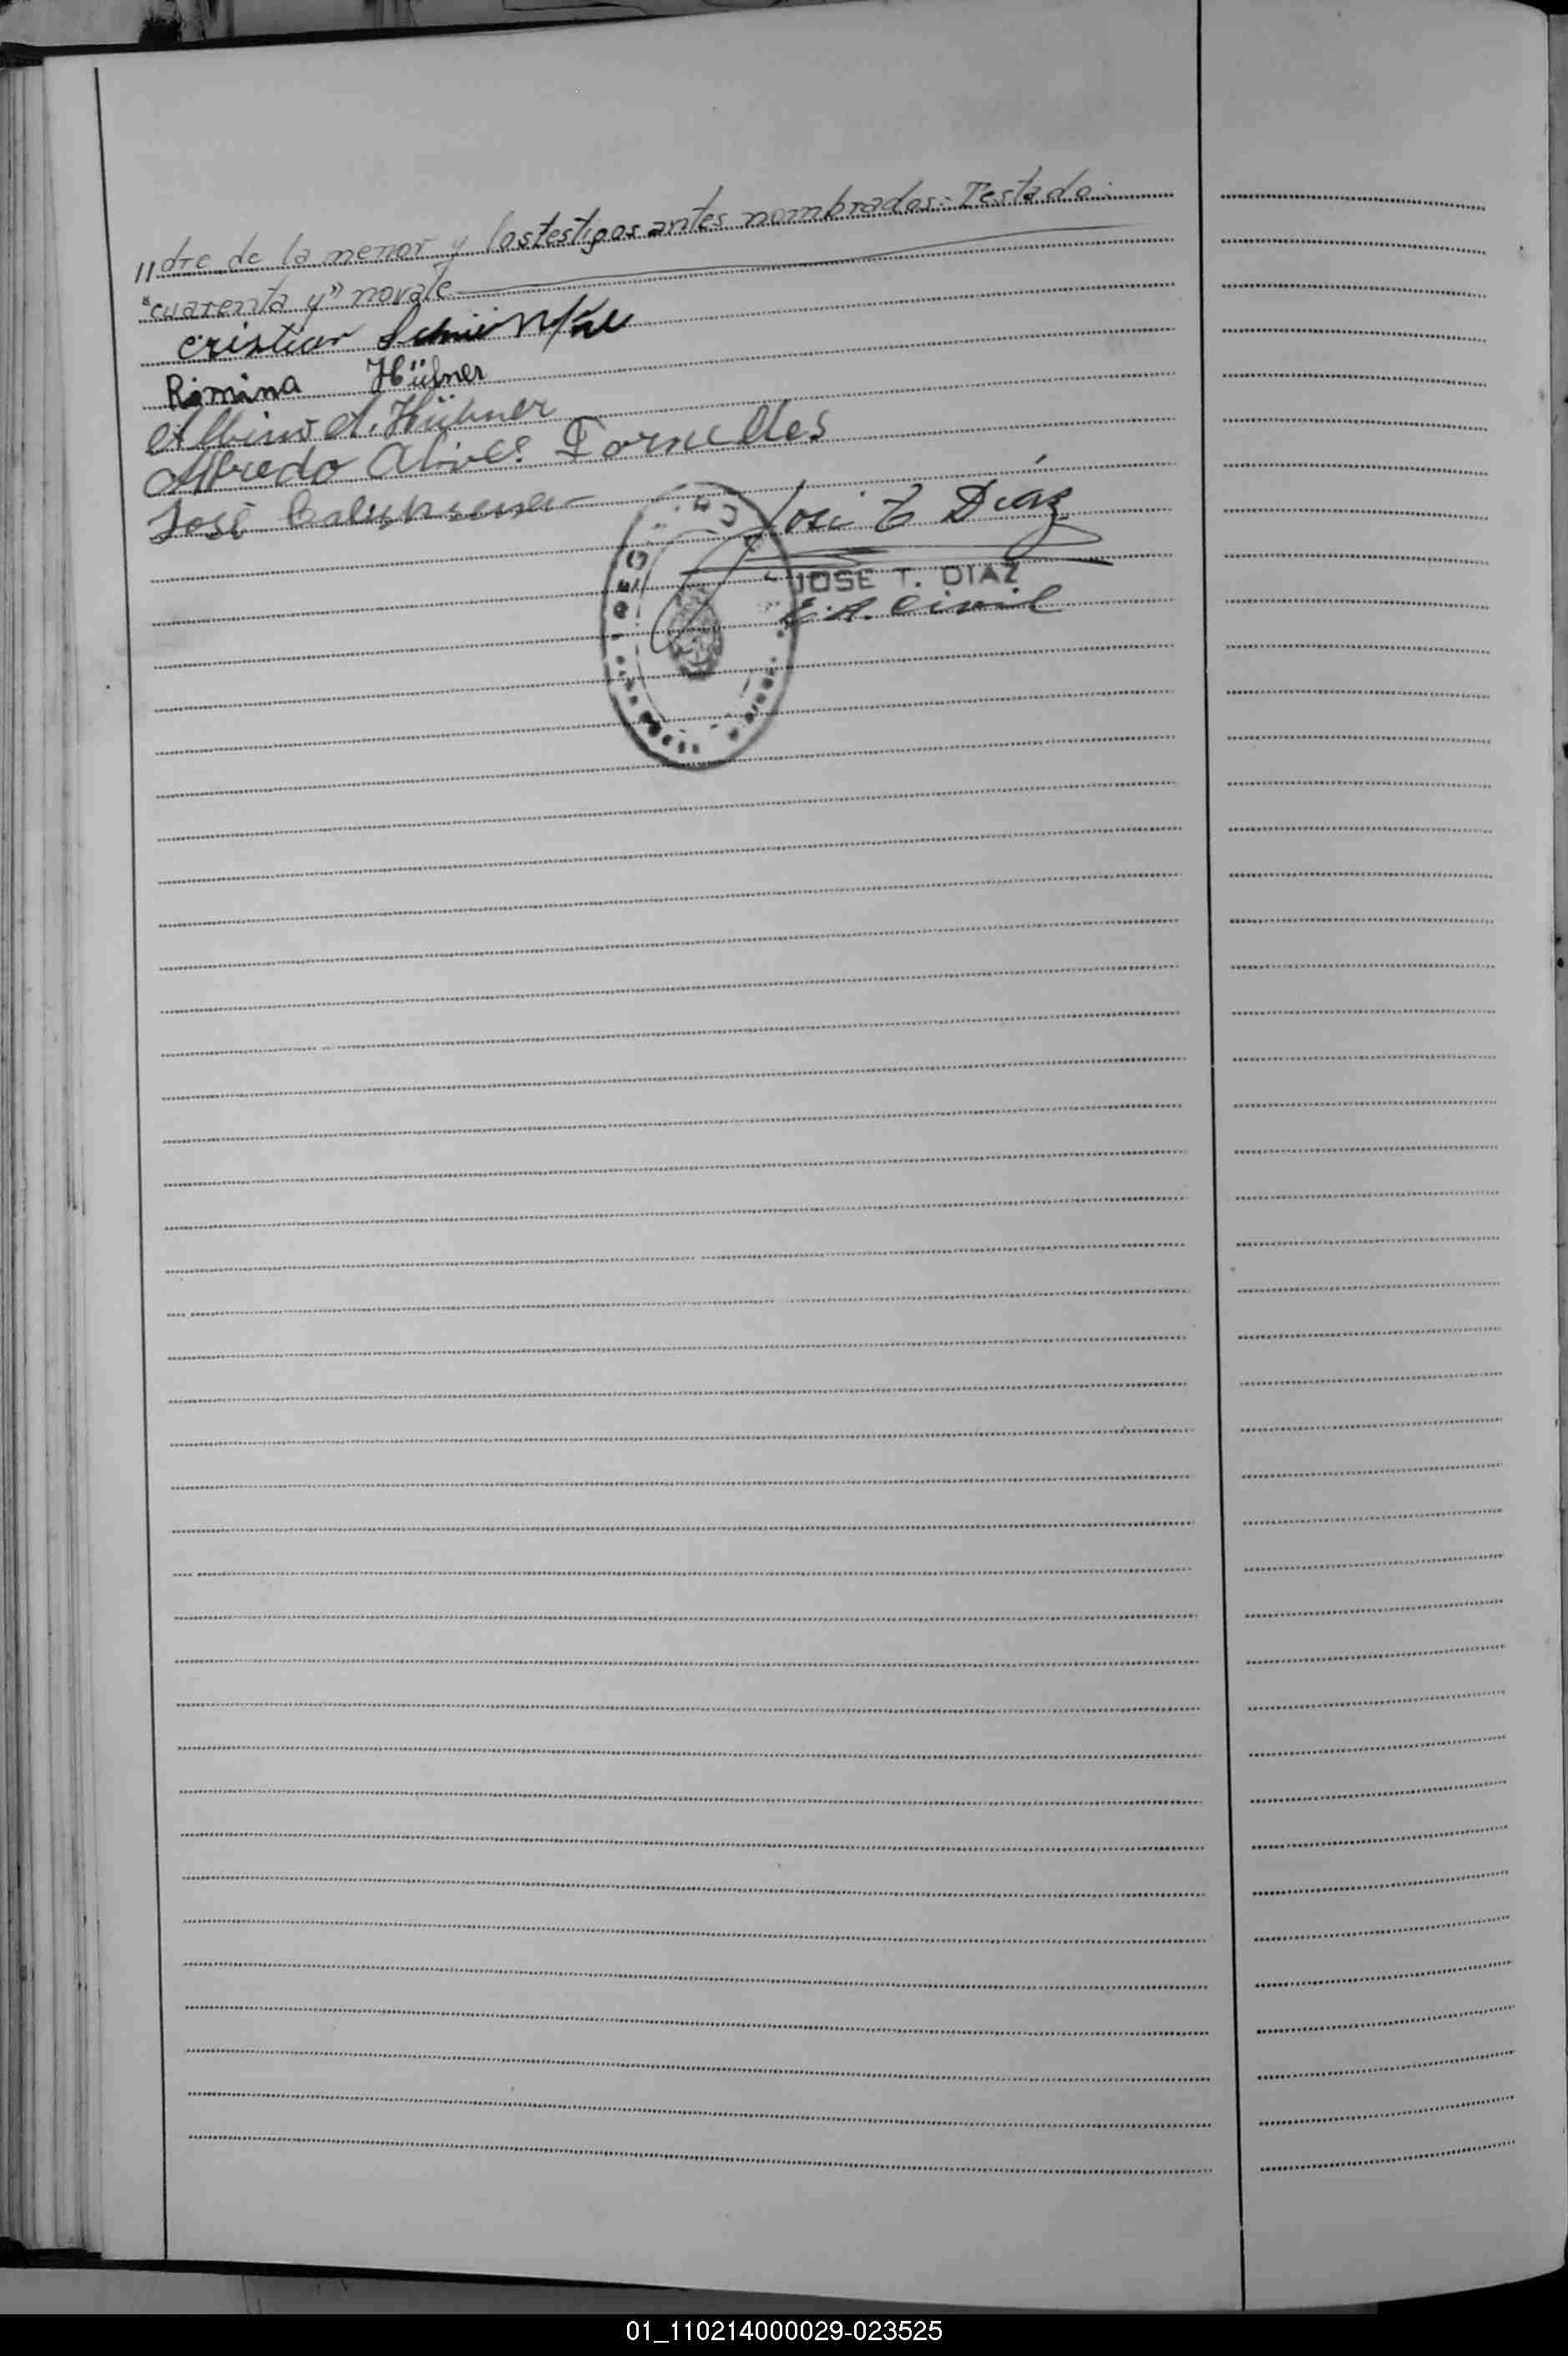 "dre de la menor y los testigos antes nombrados.- Testado:
"cuarenta y" no vale
Cristian
Romina Hübner
Albino A. Hübner
Alfredo Alves Fornelles
José
José T. Díaz
JOSE T. DIAZ
E. R. Civil
01_110214000029-023525